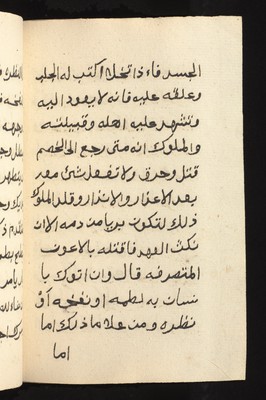 الجسد فاءذا تخلا اكتب له الحلد
وعلقه عليه فانه لا يعود اليه
وتشهد عليه اهله وقبيلته
والملوك انه متى رجع الى الخصم
قتل وحرق ولا تفعل شئ من
بعد الاعذار والانذار وقلد الملوك
ذلك لتكون بريا من دمه الا ان
نكث العهد فاقتله بالاعون
المتصرفه قال وان اتوك با
نسان به لطمه او نفخه او
نظره ومن علا ما ذلك اما
اما